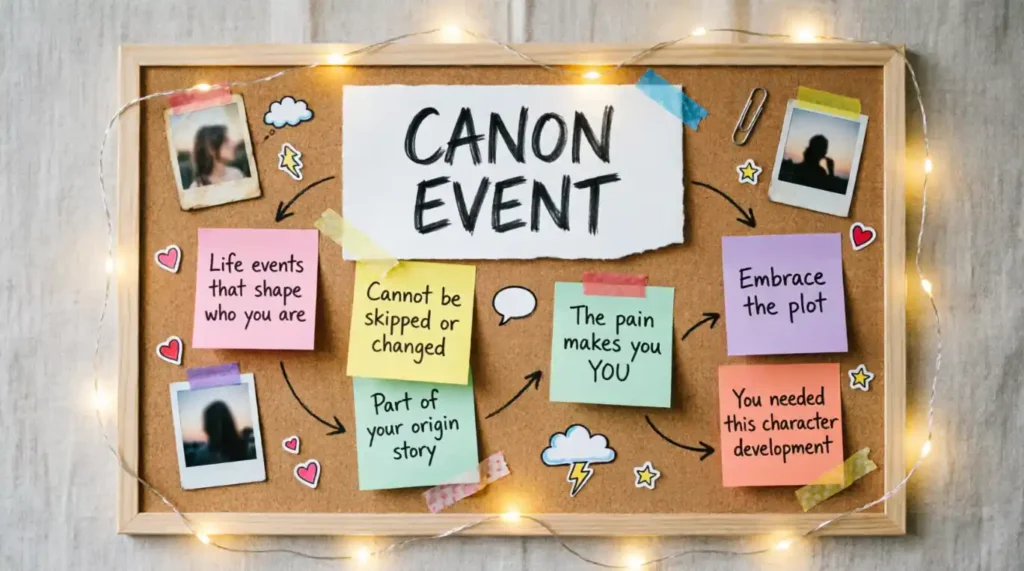 CANON
EVENT
Life events
that shape
who you are
Cannot be
skipped or
changed
Part of
your origin
story
The pain
makes you
YOU
Embrace
the plot
You needed
this character
development